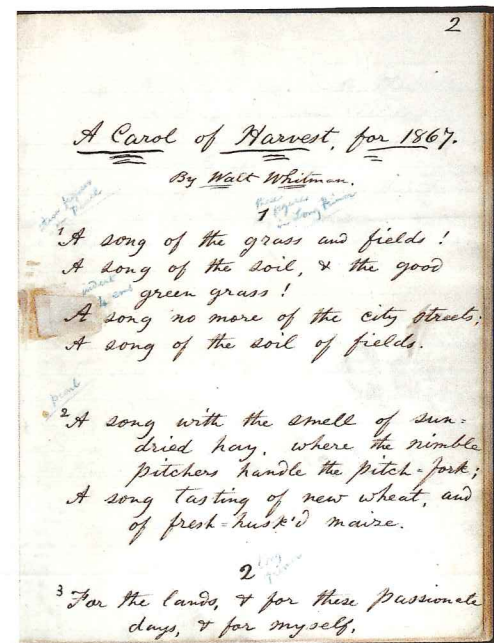 2
A Carol of Harvest, for 1867.
By Walt Whitman.
1
1 A song of the grass and fields!
A song of the soil, & the good
green grass!
A song no more of the city streets;
A song of the soil of fields.
2 A song with the smell of sun-
dried hay, where the nimble
pitchers handle the pitch-fork;
A song tasting of new wheat, and
of fresh-husk'd maize.
2
3 For the lands, & for these passionate
days, & for myself,